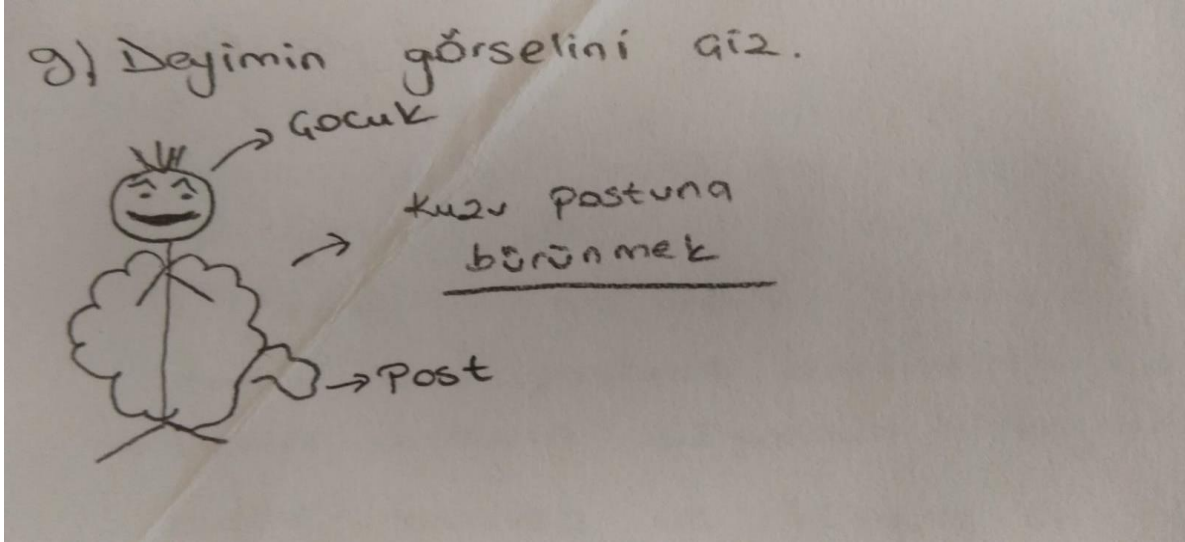 g) Deyimin görselini çiz.
Çocuk
Kuzu postuna
bürünmek
Post